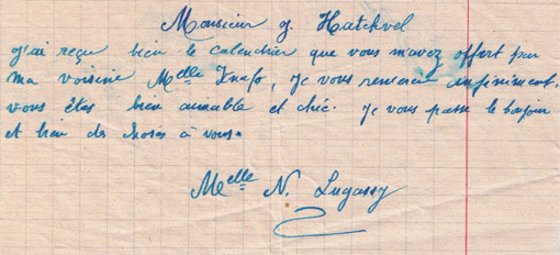 Monsieur J. Hatchvel
j'ai reçu bien le calendrier que vous m'avez offert par
ma voisine Melle Knafo, Je vous remercie infiniment,
vous êtes bien aimable et chic. Je vous passe le bonjour
et bien des choses à vous.
Melle N. Lugassy